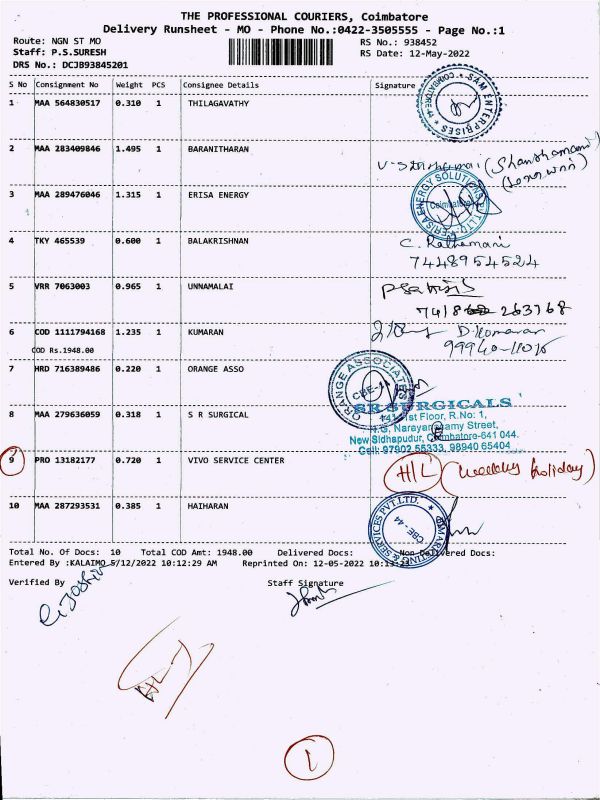 THE PROFESSIONAL COURIERS, Coimbatore
Delivery Runsheet - MO - Phone No.:0422-3505555 - Page No.:1
Route: NGN ST MO
RS No.: 938452
Staff: P.S.SURESH
RS Date: 12-May-2022
DRS No.: DCJB93845201
S No Consignment No Weight PCS Consignee Details Signature
1 MAA 564830517 0.310 1 THILAGAVATHY
SAM ENTERPRISES * COIMBATORE *
2 MAA 283409846 1.495 1 BARANITHARAN
3 MAA 289476046 1.315 1 ERISA ENERGY
ERISA ENERGY SOLUTIONS Coimbatore
4 TKY 465539 0.600 1 BALAKRISHNAN
C. Rathamani
7448954524
5 VRR 7063003 0.965 1 UNNAMALAI
263768
6 COD 1111794168 1.235 1 KUMARAN
D. Kumaran
COD Rs.1948.00
7 HRD 716389486 0.220 1 ORANGE ASSO
ORANGE ASSOCIATES CBE-44
8 MAA 279636059 0.318 1 S R SURGICAL
SR SURGICALS
141, 1st Floor, R.No: 1,
N.G. Narayanasamy Street,
New Sidhapudur, Coimbatore-641 044.
Cell: 97902 55333, 98940 65404
9 PRO 13182177 0.720 1 VIVO SERVICE CENTER
H/L (weekly holiday)
10 MAA 287293531 0.385 1 HAIHARAN
MARKETING & SERVICES PVT.LTD. CBE-44
Total No. Of Docs: 10 Total COD Amt: 1948.00 Delivered Docs: Non-Delivered Docs:
Entered By :KALAIMO 5/12/2022 10:12:29 AM Reprinted On: 12-05-2022 10:13:23
Verified By Staff Signature
H/L-1
1